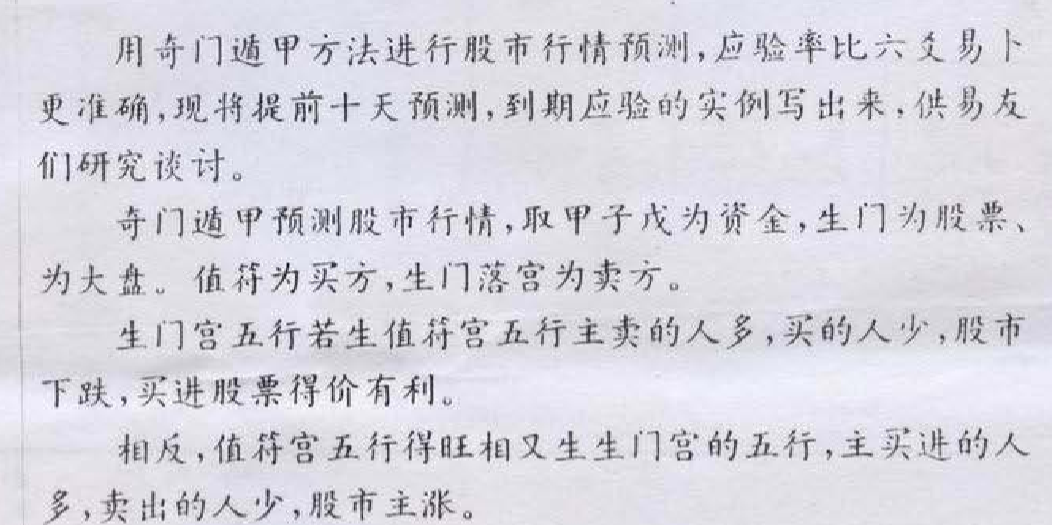 用奇门遁甲方法进行股市行情预测,应验率比六爻易卜
更准确,现将提前十天预测,到期应验的实例写出来,供易友
们研究谈讨。
奇门遁甲预测股市行情,取甲子戊为资金,生门为股票、
为大盘。值符为买方,生门落宫为卖方。
生门宫五行若生值符宫五行主卖的人多,买的人少,股市
下跌,买进股票得价有利。
相反,值符宫五行得旺相又生生门宫的五行,主买进的人
多,卖出的人少,股市主涨。